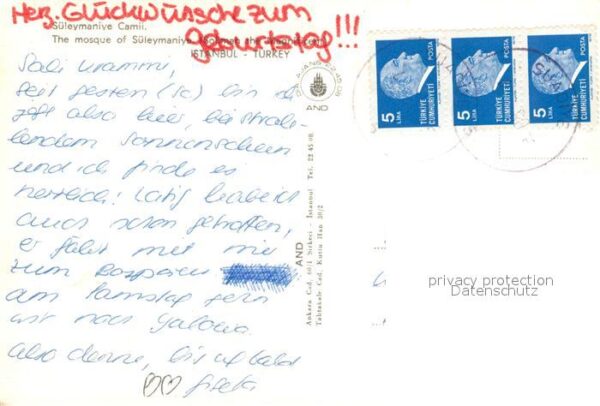 Herz. Glückwünsche zum
Geburtstag!!!
Süleymaniye Camii.
The mosque of Süleymaniye
ISTANBUL - TURKEY
AND
Sali
bin
jetzt also hier, bei strah-
lendem Sonnenschein
und ich finde es
herrlich! Latif habe ich
auch schon getroffen,
er fährt mit mir
zum
am Samstag gehn
wir nach Yalova.
Also denne, bis
Gisela
AND
Ankara Cad. 60/1 Sirkeci - İstanbul Tel. 22 45 08
Tahtakale Cad. Kutlu Han 30/2
5 LİRA
TÜRKİYE CUMHURİYETİ
POSTA
5 LİRA
TÜRKİYE CUMHURİYETİ
POSTA
5 LİRA
TÜRKİYE CUMHURİYETİ
POSTA
privacy protection
Datenschutz